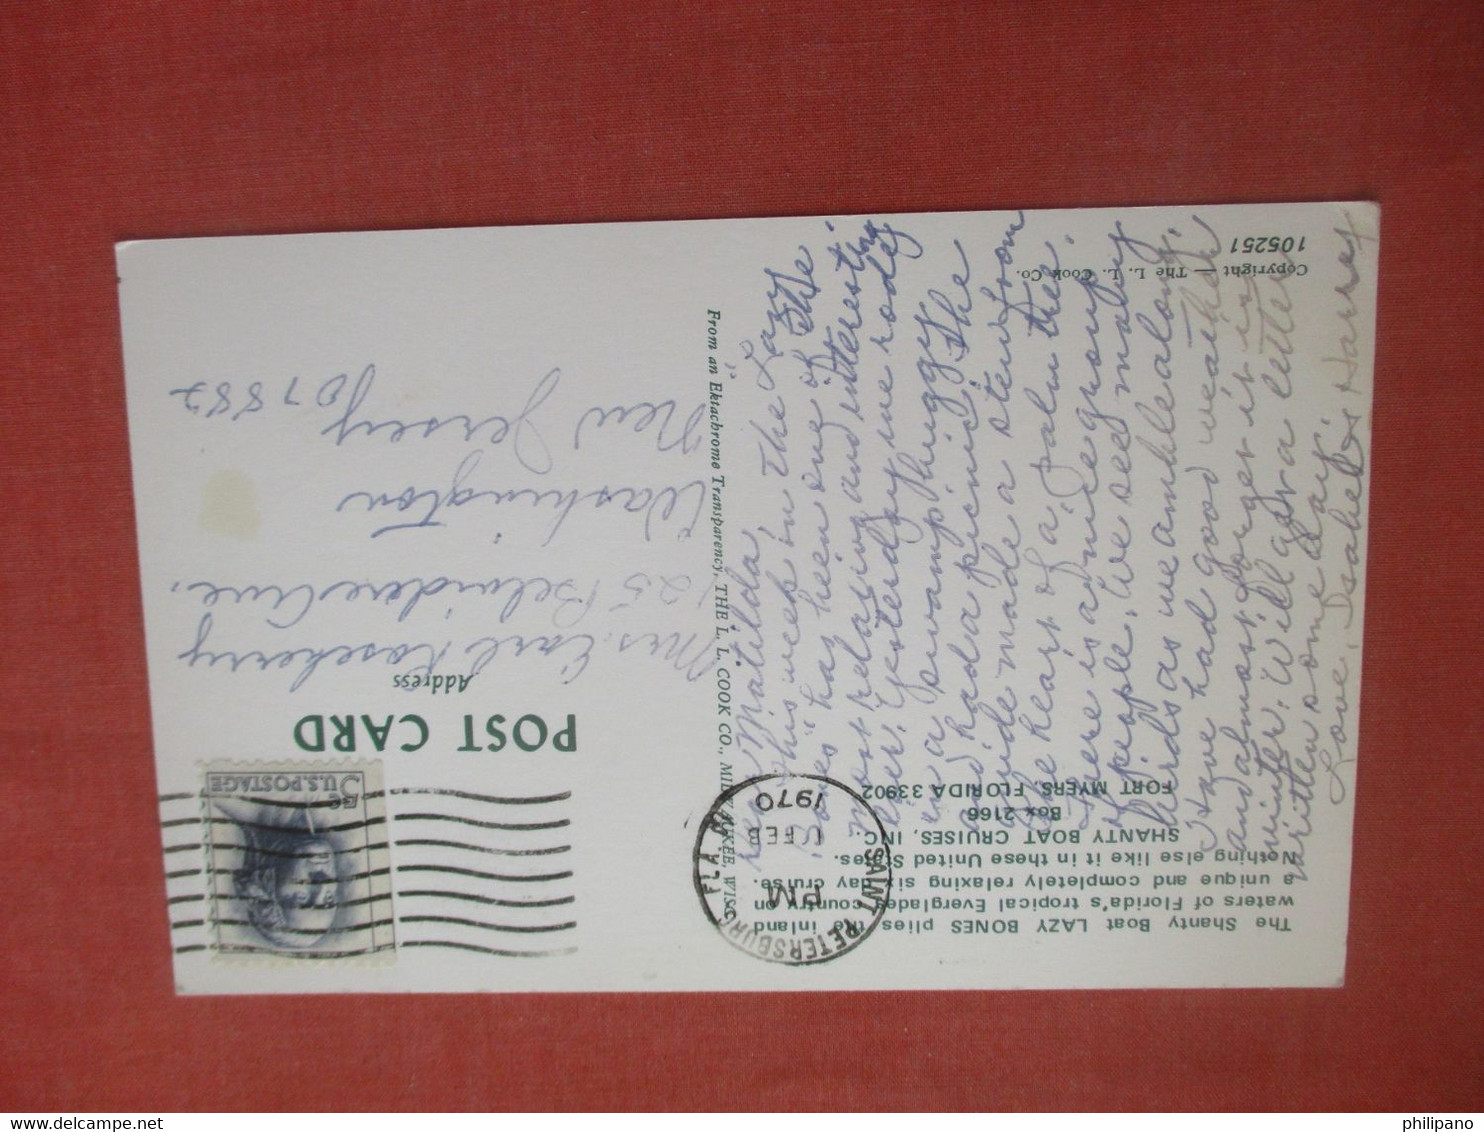 The Shanty Boat LAZY BONES plies the inland
waters of Florida's tropical Everglades country on
a unique and completely relaxing six day cruise.
Nothing else like it in these United States.
SHANTY BOAT CRUISES, INC.
Box 2166
FORT MYERS, FLORIDA 33902
Copyright — The L. L. Cook Co.
105251
Matilda,
This week on the "Lazy
Bones" has been one of the
most relaxing and interesting
ever. Yesterday we rode
in a swamp buggy
and had a picnic. The
guide made a stew from
the heart of a palm tree.
There is a nice group
of people. We see many
birds as we amble along.
Have had good weather
and almost forget it is
winter. Will a letter
written some day.
Love, Isabel & Harvey
From an Ektachrome Transparency, THE L. L. COOK CO., MILWAUKEE, WISC.
SAINT PETERSBURG, FLA.
PM
1 FEB
1970
POST CARD
Address
5¢
U.S.POSTAGE
Mrs. Earl Roseberry
25 Belvidere Ave.
Washington
New Jersey
07882
philipano